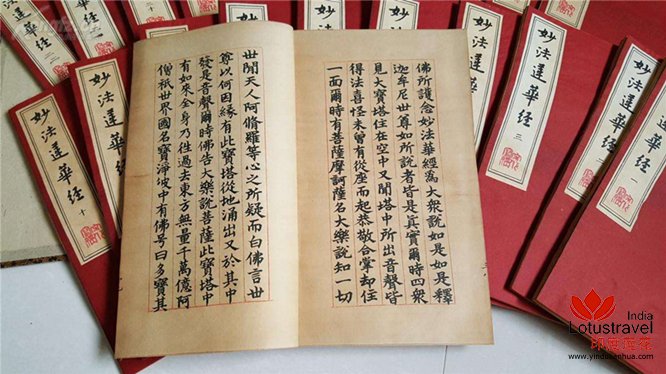 佛所護念妙法華經為大衆說如是如是釋
迦牟尼世尊如所說者皆是真實爾時四衆
見大寶塔住在空中又聞塔中所出音聲皆
得法喜怪未曾有從座而起恭敬合掌却住
一面爾時有菩薩摩訶薩名大樂說知一切
世間天人阿脩羅等心之所疑而白佛言世
尊以何因緣有此寶塔從地涌出又於其中
發是音聲爾時佛告大樂說菩薩此寶塔中
有如來全身乃往過去東方無量千萬億阿
僧祇世界國名寶淨彼中有佛号曰多寶其
妙法蓮華經 一
妙法蓮華經
妙法蓮華經 三
妙法蓮華經
妙法蓮華經
妙法蓮華經 十
India
Lotustravel
印度莲花
www.yindulianhua.com